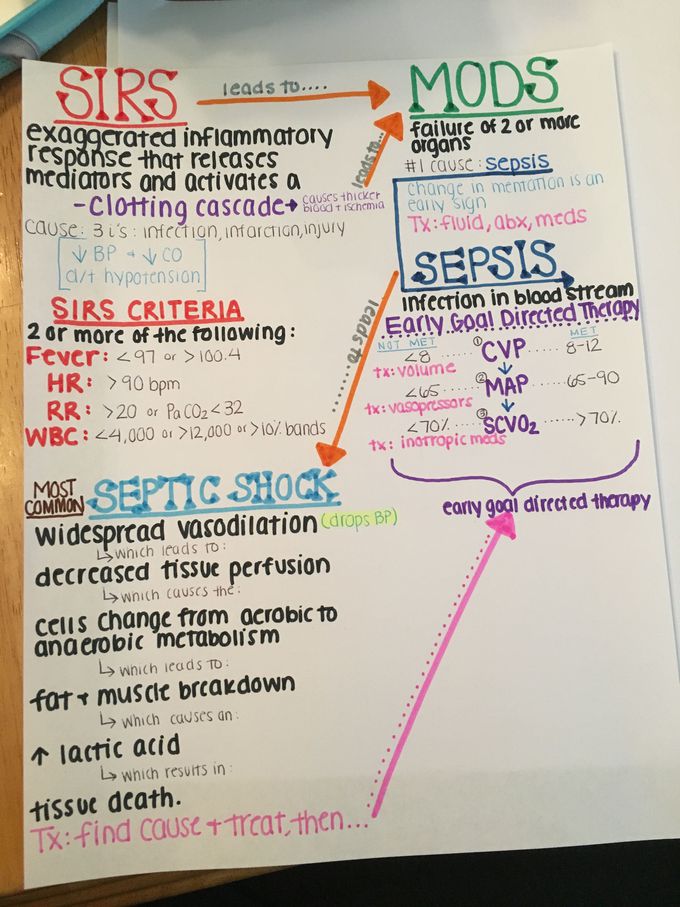 SIRS
leads to....
MODS
exaggerated inflammatory
response that releases
mediators and activates a
-Clotting cascade→ causes thicker
blood + ischemia
cause: 3 i's: infection, infarction, injury
↓ BP + ↓ CO
d/t hypotension
leads to...
failure of 2 or more
organs
#1 cause: sepsis
change in mentation is an
early sign
Tx: fluid, abx, meds
SIRS CRITERIA
2 or more of the following:
Fever: <97 or >100.4
HR: >90 bpm
RR: >20 or PaCO2<32
WBC: <4,000 or >12,000 or >10% bands
leads to
SEPSIS
Infection in blood stream
Early Goal Directed Therapy
NOT MET
MET
<8 ...... ① CVP ..... 8-12
tx: volume
↓
<65 ........ ② MAP ...... 65-90
tx: vasopressors
↓
<70% ..... ③ SCVO2 ...... >70%
tx: inotropic meds
early goal directed therapy
MOST
COMMON
SEPTIC SHOCK
widespread vasodilation (drops BP)
↳ which leads to:
decreased tissue perfusion
↳ which causes the:
cells change from aerobic to
anaerobic metabolism
↳ which leads to:
fat + muscle breakdown
↳ which causes an:
↑ lactic acid
↳ which results in:
tissue death.
Tx: find cause + treat, then...